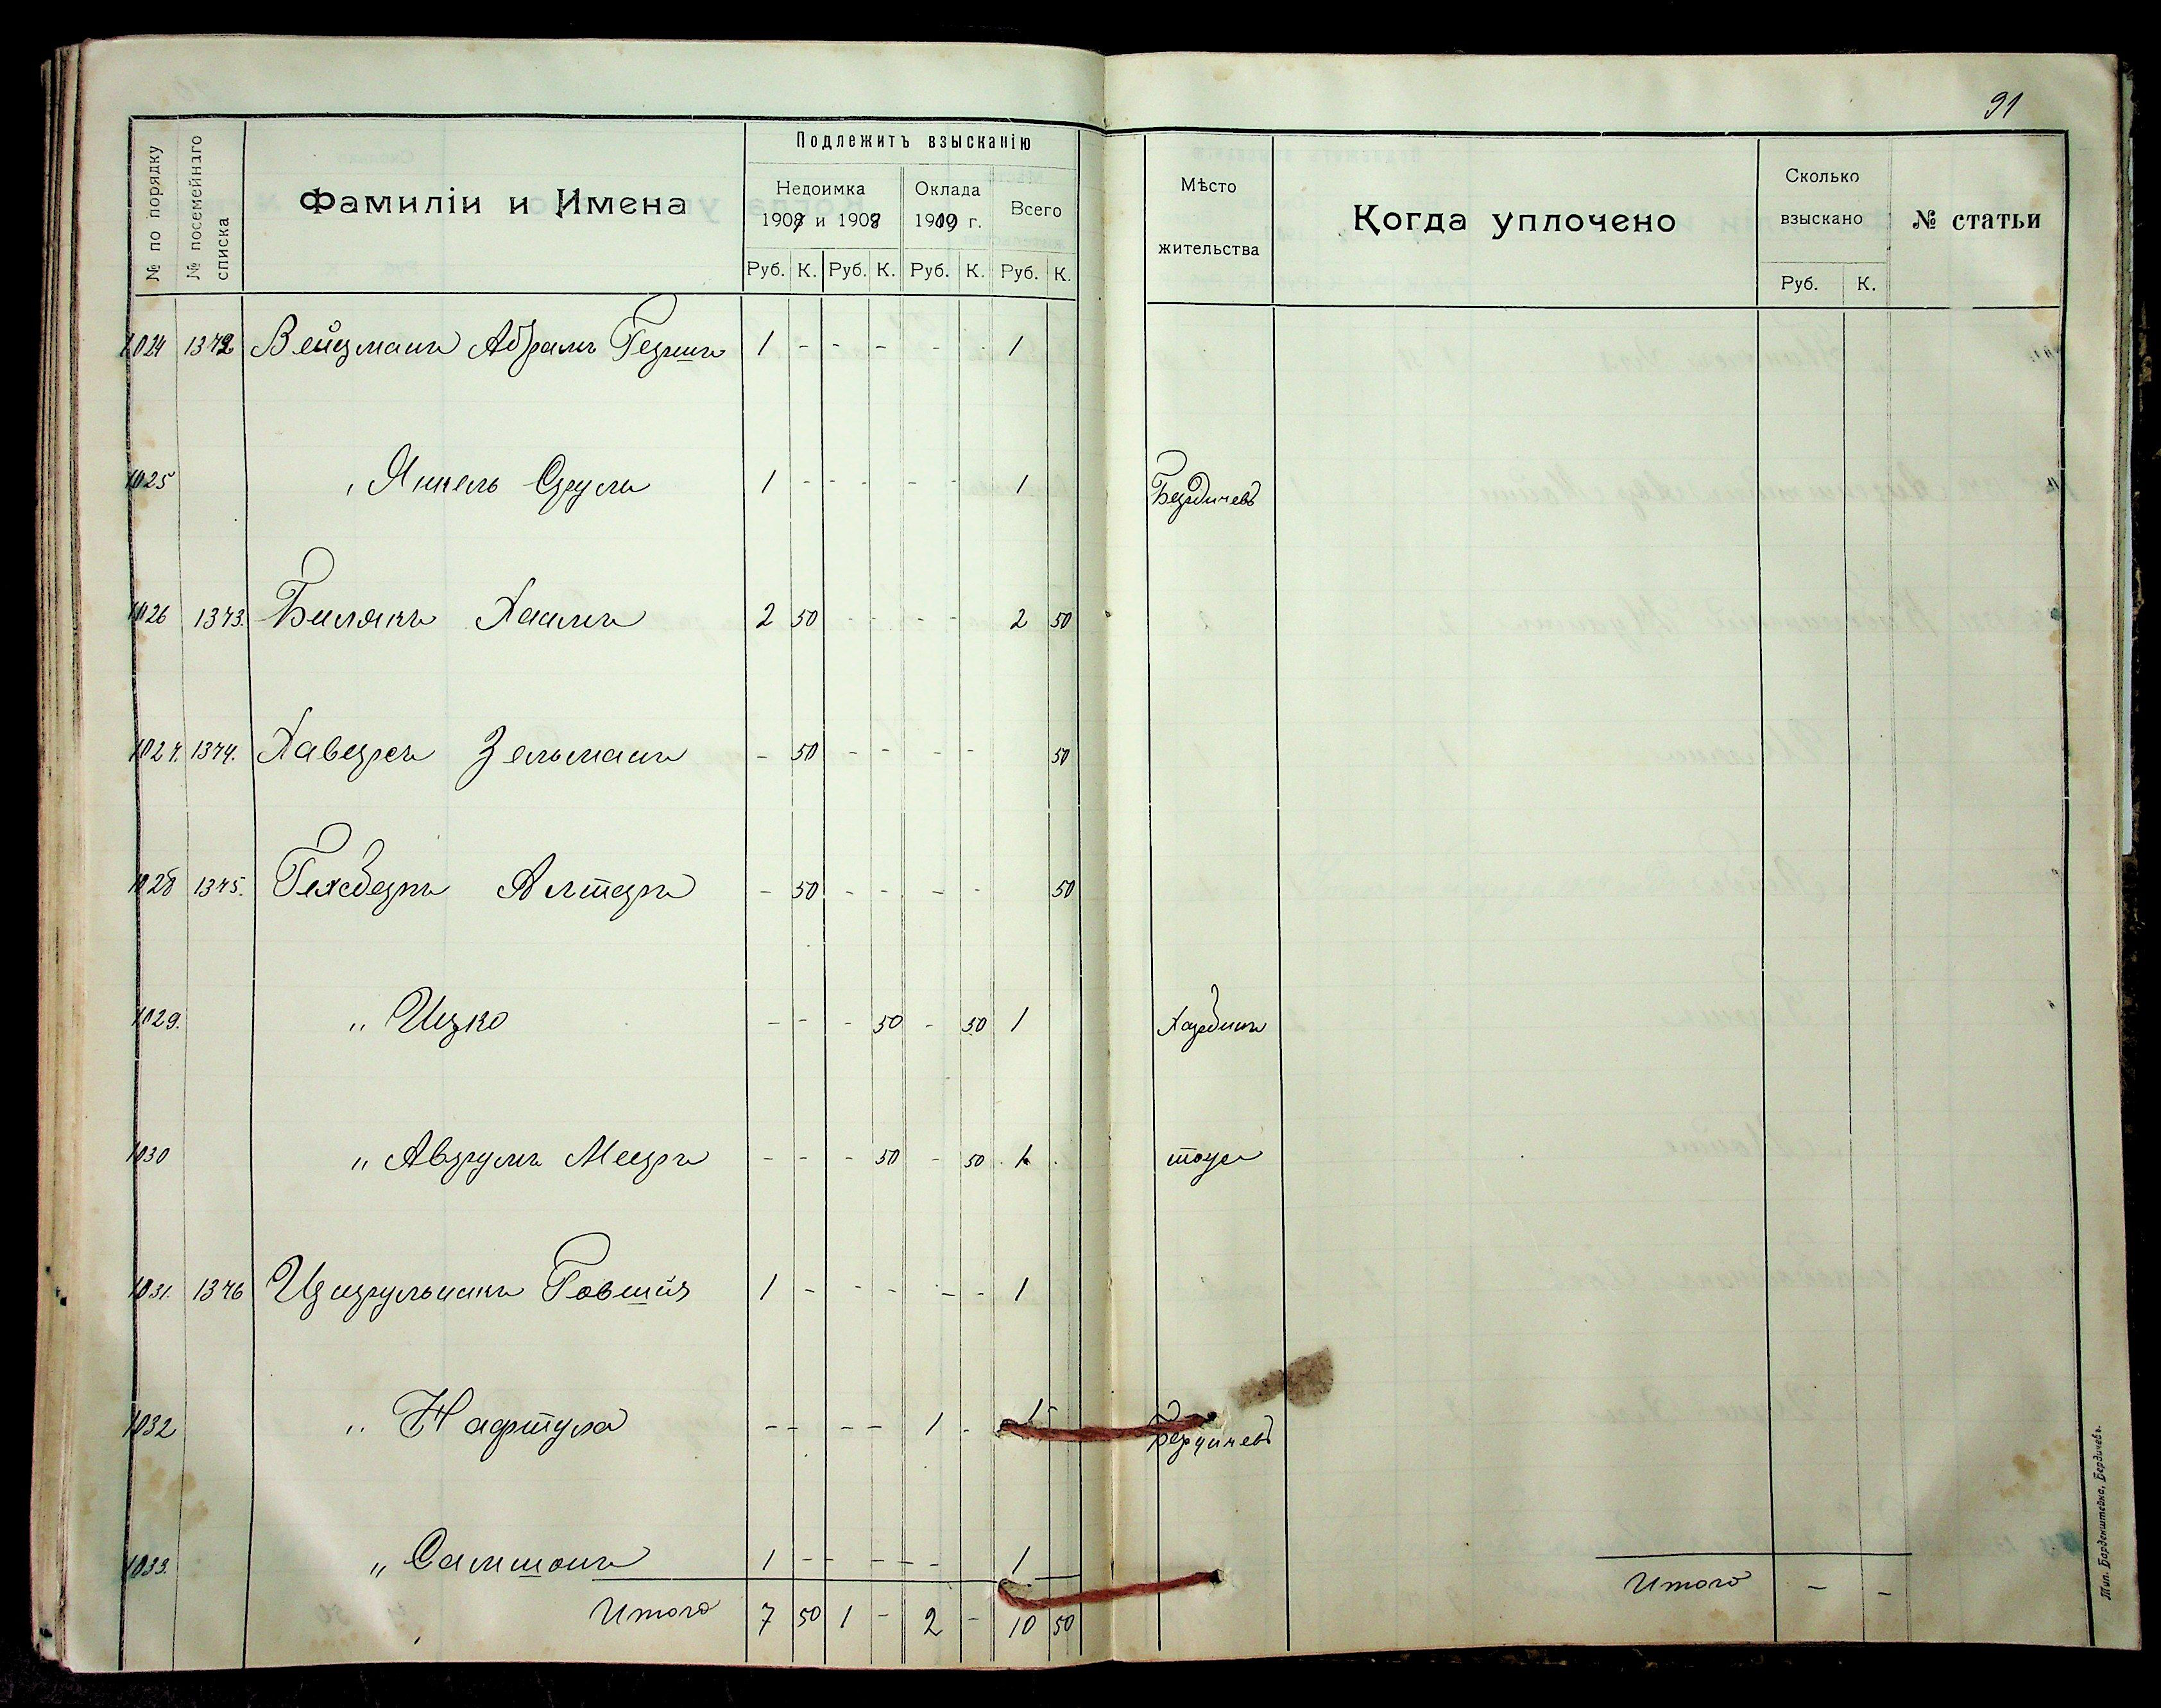 91
№ по порядку
№ посемейнаго списка
Фамиліи и Имена
Подлежитъ взысканію
Недоимка
1907 и 1908
Оклада
1909 г.
Всего
Руб. К. Руб. К. Руб. К. Руб. К.
Мѣсто
жительства
Когда уплочено
Сколько
взыскано
Руб. К.
№ статьи
1024 1372 Вейцманъ Абрамъ Герш 1 - - - - - 1
1025 " Янкель Сруль 1 - - - - - 1 Бердичевъ
1026 1373. Билякъ Хаимъ 2 50 - - - - 2 50
1027. 1374. Хаверсъ Зельманъ - 50 - - - - 50
1028 1375. Гехберъ Алтеръ - 50 - - - - 50
1029. " Ицко - - - 50 - 50 1
1030 " Аврумъ Мееръ - - - 50 - 50 1 тоже
1031. 1376 Цирульникъ Говшія 1 - - - - - 1
1032 " Нафтула - - - - 1 - 1 Бердичевъ
1033. " Самшонъ 1 - - - - - 1
Итого 7 50 1 - 2 - 10 50
Итого - -
Тип. Барденштейна, Бердичевъ.